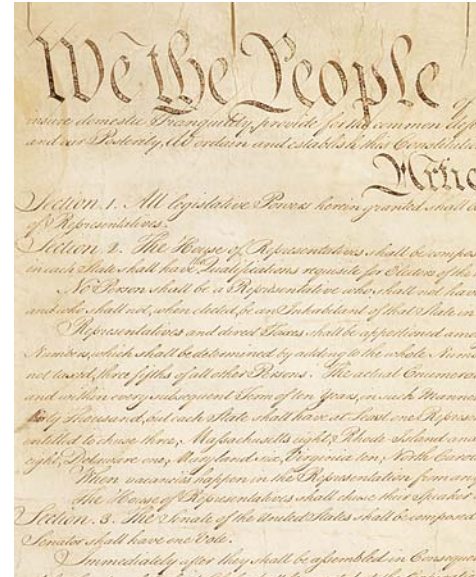 We the People of
insure domestic Tranquility, provide for the common def
and our Posterity, do ordain and establish this Constitutio
Artic
Section. 1. All legislative Powers herein granted shall be
of Representatives.
Section. 2. The House of Representatives shall be compos
in each State shall have the Qualifications requisite for Electors of the
No Person shall be a Representative who shall not have
and who shall not, when elected, be an Inhabitant of that State in
Representatives and direct Taxes shall be apportioned amo
Numbers, which shall be determined by adding to the whole Num
not taxed, three fifths of all other Persons. The actual Enumera
and within every subsequent Term of ten Years, in such Manne
thirty Thousand, but each State shall have at Least one Repres
entitled to chuse three, Massachusetts eight, Rhode-Island and
eight, Delaware one, Maryland six, Virginia ten, North Carol
When vacancies happen in the Representation from any
The House of Representatives shall chuse their Speaker
Section. 3. The Senate of the United States shall be composed
Senator shall have one Vote.
Immediately after they shall be assembled in Consequ